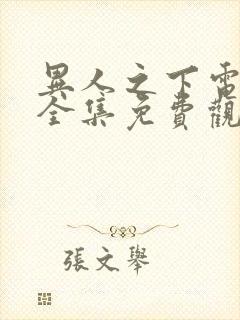 異人之下電
全集免費觀
張文舉